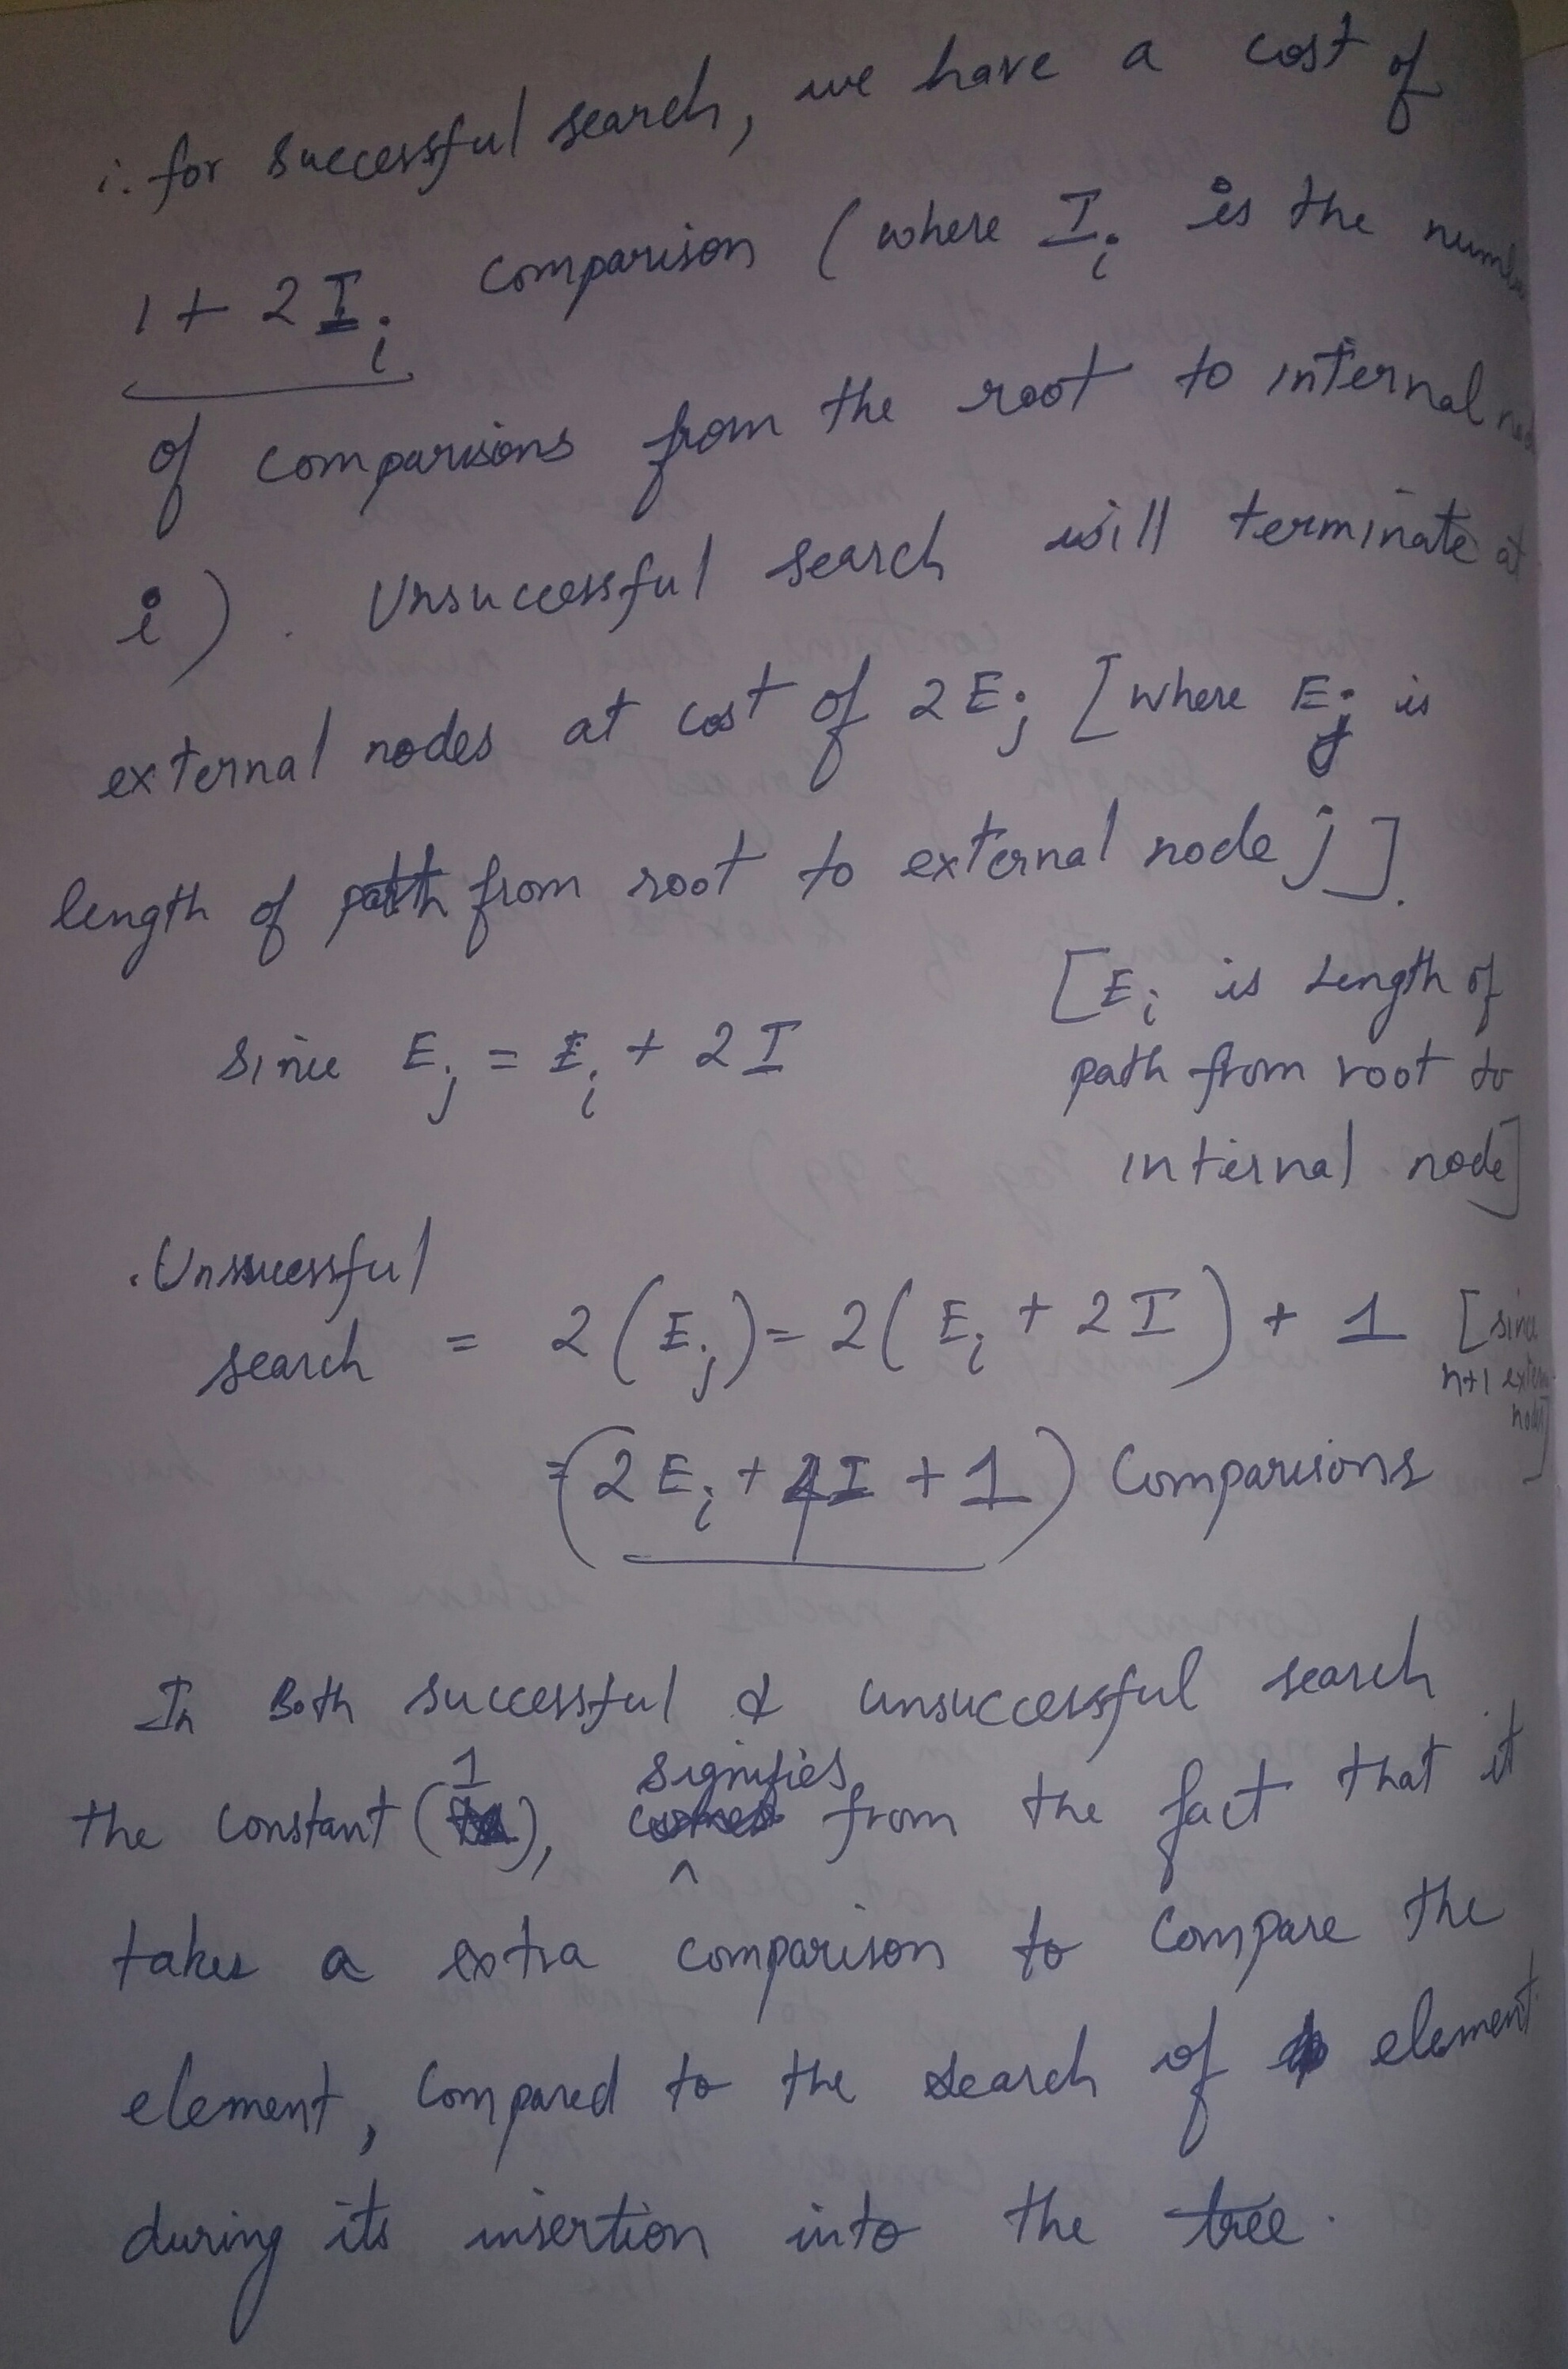 ∴ for successful search, we have a cost of
1 + 2 I_i comparison (where I_i is the
of comparisions from the root to internal
i). Unsuccessful search will terminate at
external nodes at cost of 2 E_j [where E_j is
length of path from root to external node j].
since E_j = E_i + 2 I
[E_i is Length of
path from root to
internal node]
. Unsuccessful
search = 2 (E_j) = 2 (E_i + 2 I) + 1 [since
n+1 extern
node]
= (2 E_i + 4 I + 1) comparisions
In Both successful & unsuccessful search
the constant (1), signifies from the fact that it
takes a extra comparison to compare the
element, compared to the search of element
during its insertion into the tree.